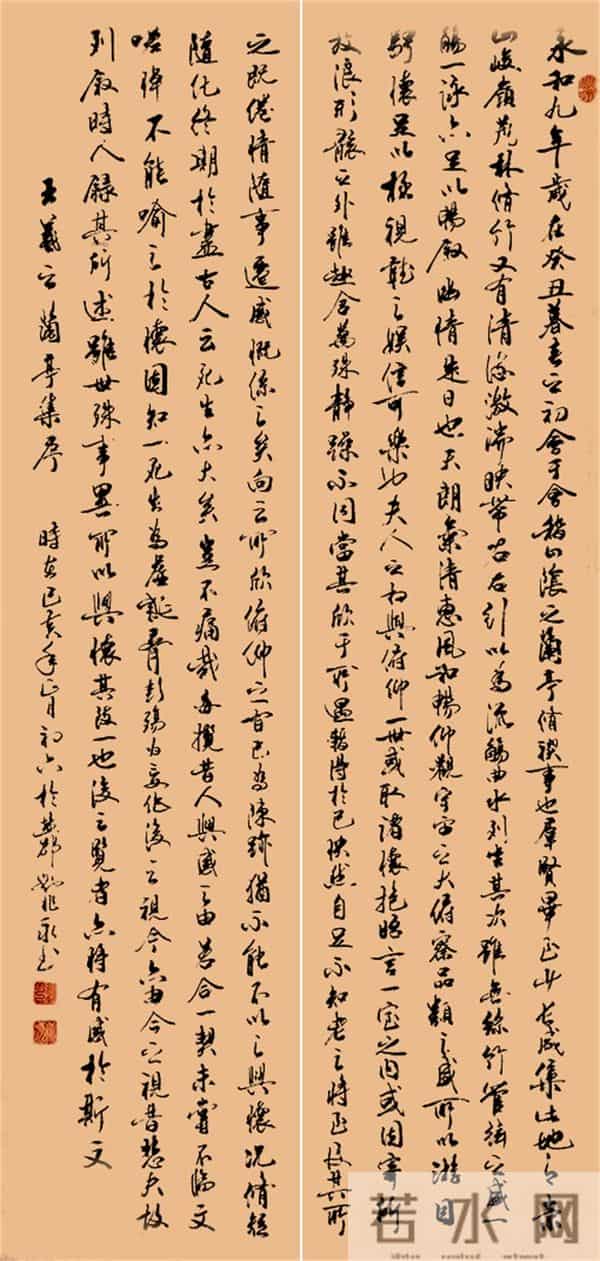 永和九年歲在癸丑暮春之初會于會稽山陰之蘭亭脩禊事也羣賢畢至少長咸集此地有崇
山峻嶺茂林脩竹又有清流激湍映帶左右引以為流觴曲水列坐其次雖無絲竹管絃之盛一
觴一詠亦足以暢叙幽情是日也天朗氣清惠風和暢仰觀宇宙之大俯察品類之盛所以遊目
騁懷足以極視聽之娛信可樂也夫人之相與俯仰一世或取諸懷抱晤言一室之內或因寄所
放浪形骸之外雖趣舍萬殊靜躁不同當其欣于所遇暫得於己怏然自足不知老之將至及其所
之既倦情隨事遷感慨係之矣向之所欣俯仰之間已為陳跡猶不能不以之興懷況脩短
隨化終期於盡古人云死生亦大矣豈不痛哉每攬昔人興感之由若合一契未嘗不臨文
嗟悼不能喻之於懷固知一死生為虛誕齊彭殤為妄作後之視今亦由今之視昔悲夫故
列叙時人錄其所述雖世殊事異所以興懷其致一也後之覽者亦將有感於斯文
王羲之蘭亭集序 時在己亥年正月初六於
若水网